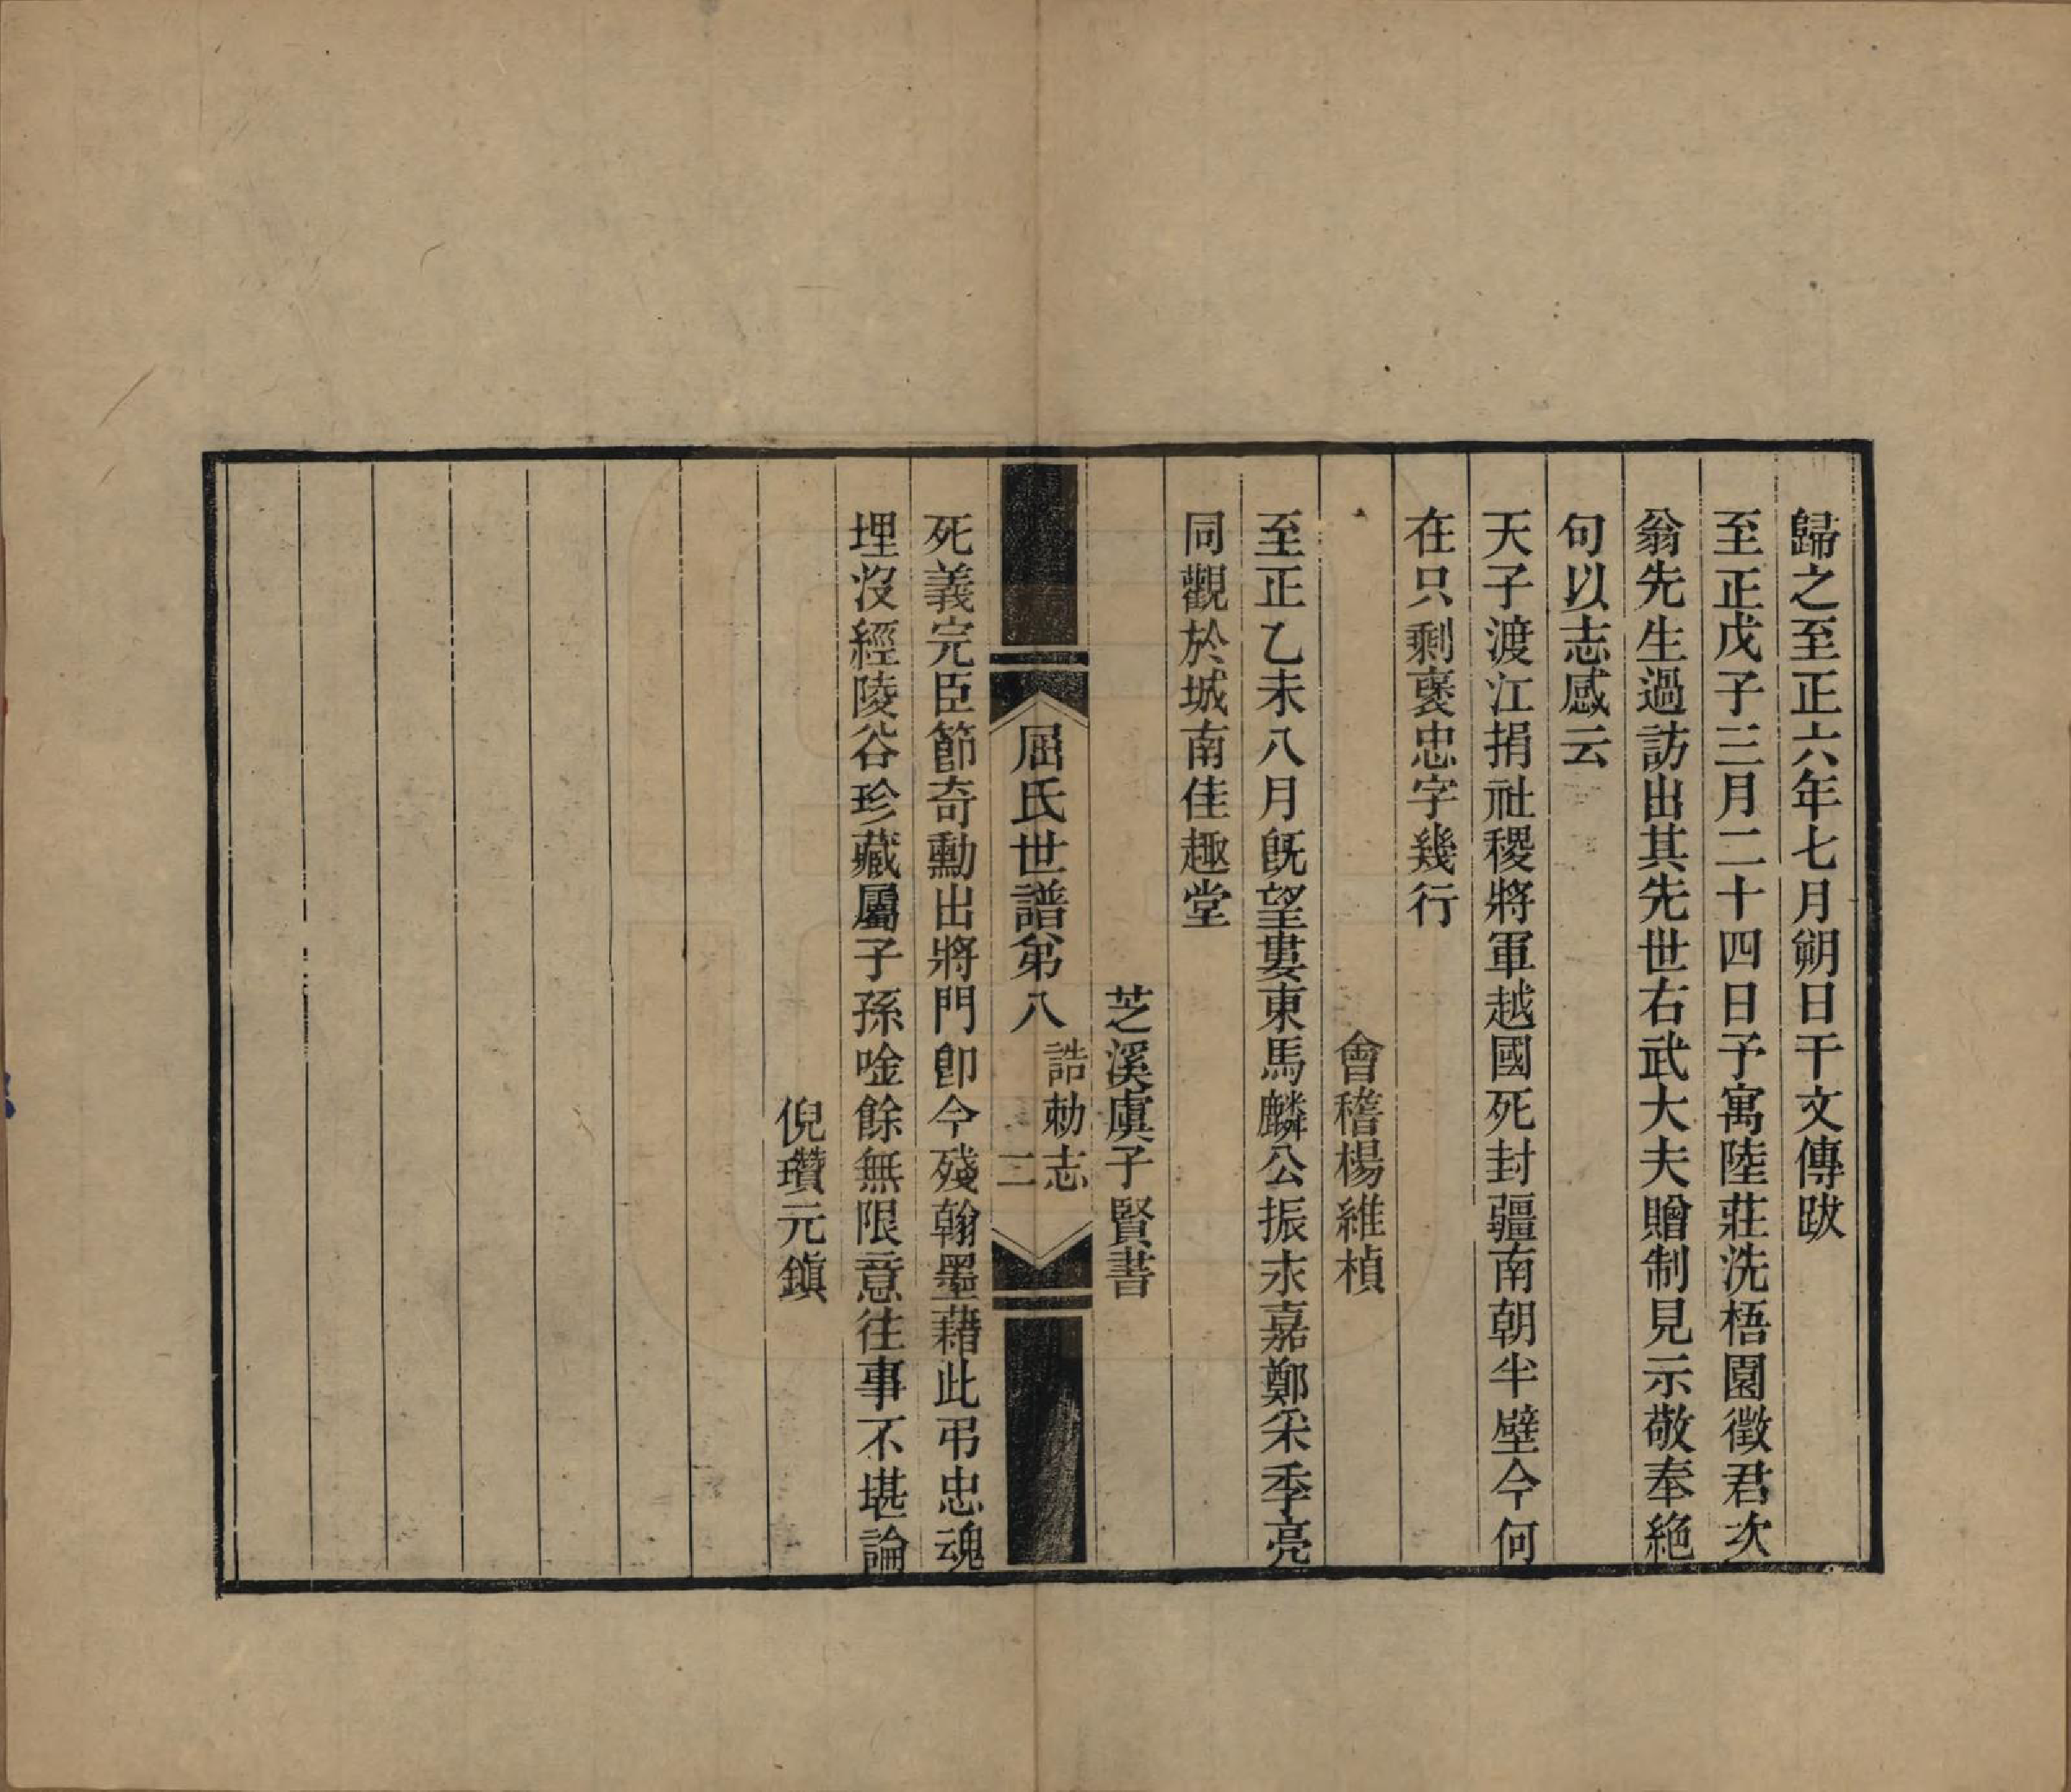 歸之至正六年七月朔日干文傳跋
至正戊子三月二十四日予寓陸莊洗梧園徵君次
翁先生過訪出其先世右武大夫贈制見示敬奉絶
句以志感云
天子渡江捐社稷將軍越國死封疆南朝半壁今何
在只剩褒忠字幾行
會稽楊維楨
至正乙未八月旣望婁東馬麟公振永嘉鄭采季亮
同觀於城南佳趣堂
芝溪虞子賢書
屈氏世譜第八 誥勅志 二
死義完臣節奇勳出將門卽今殘翰墨藉此弔忠魂
埋沒經陵谷珍藏屬子孫唫餘無限意往事不堪論
倪瓚元鎭